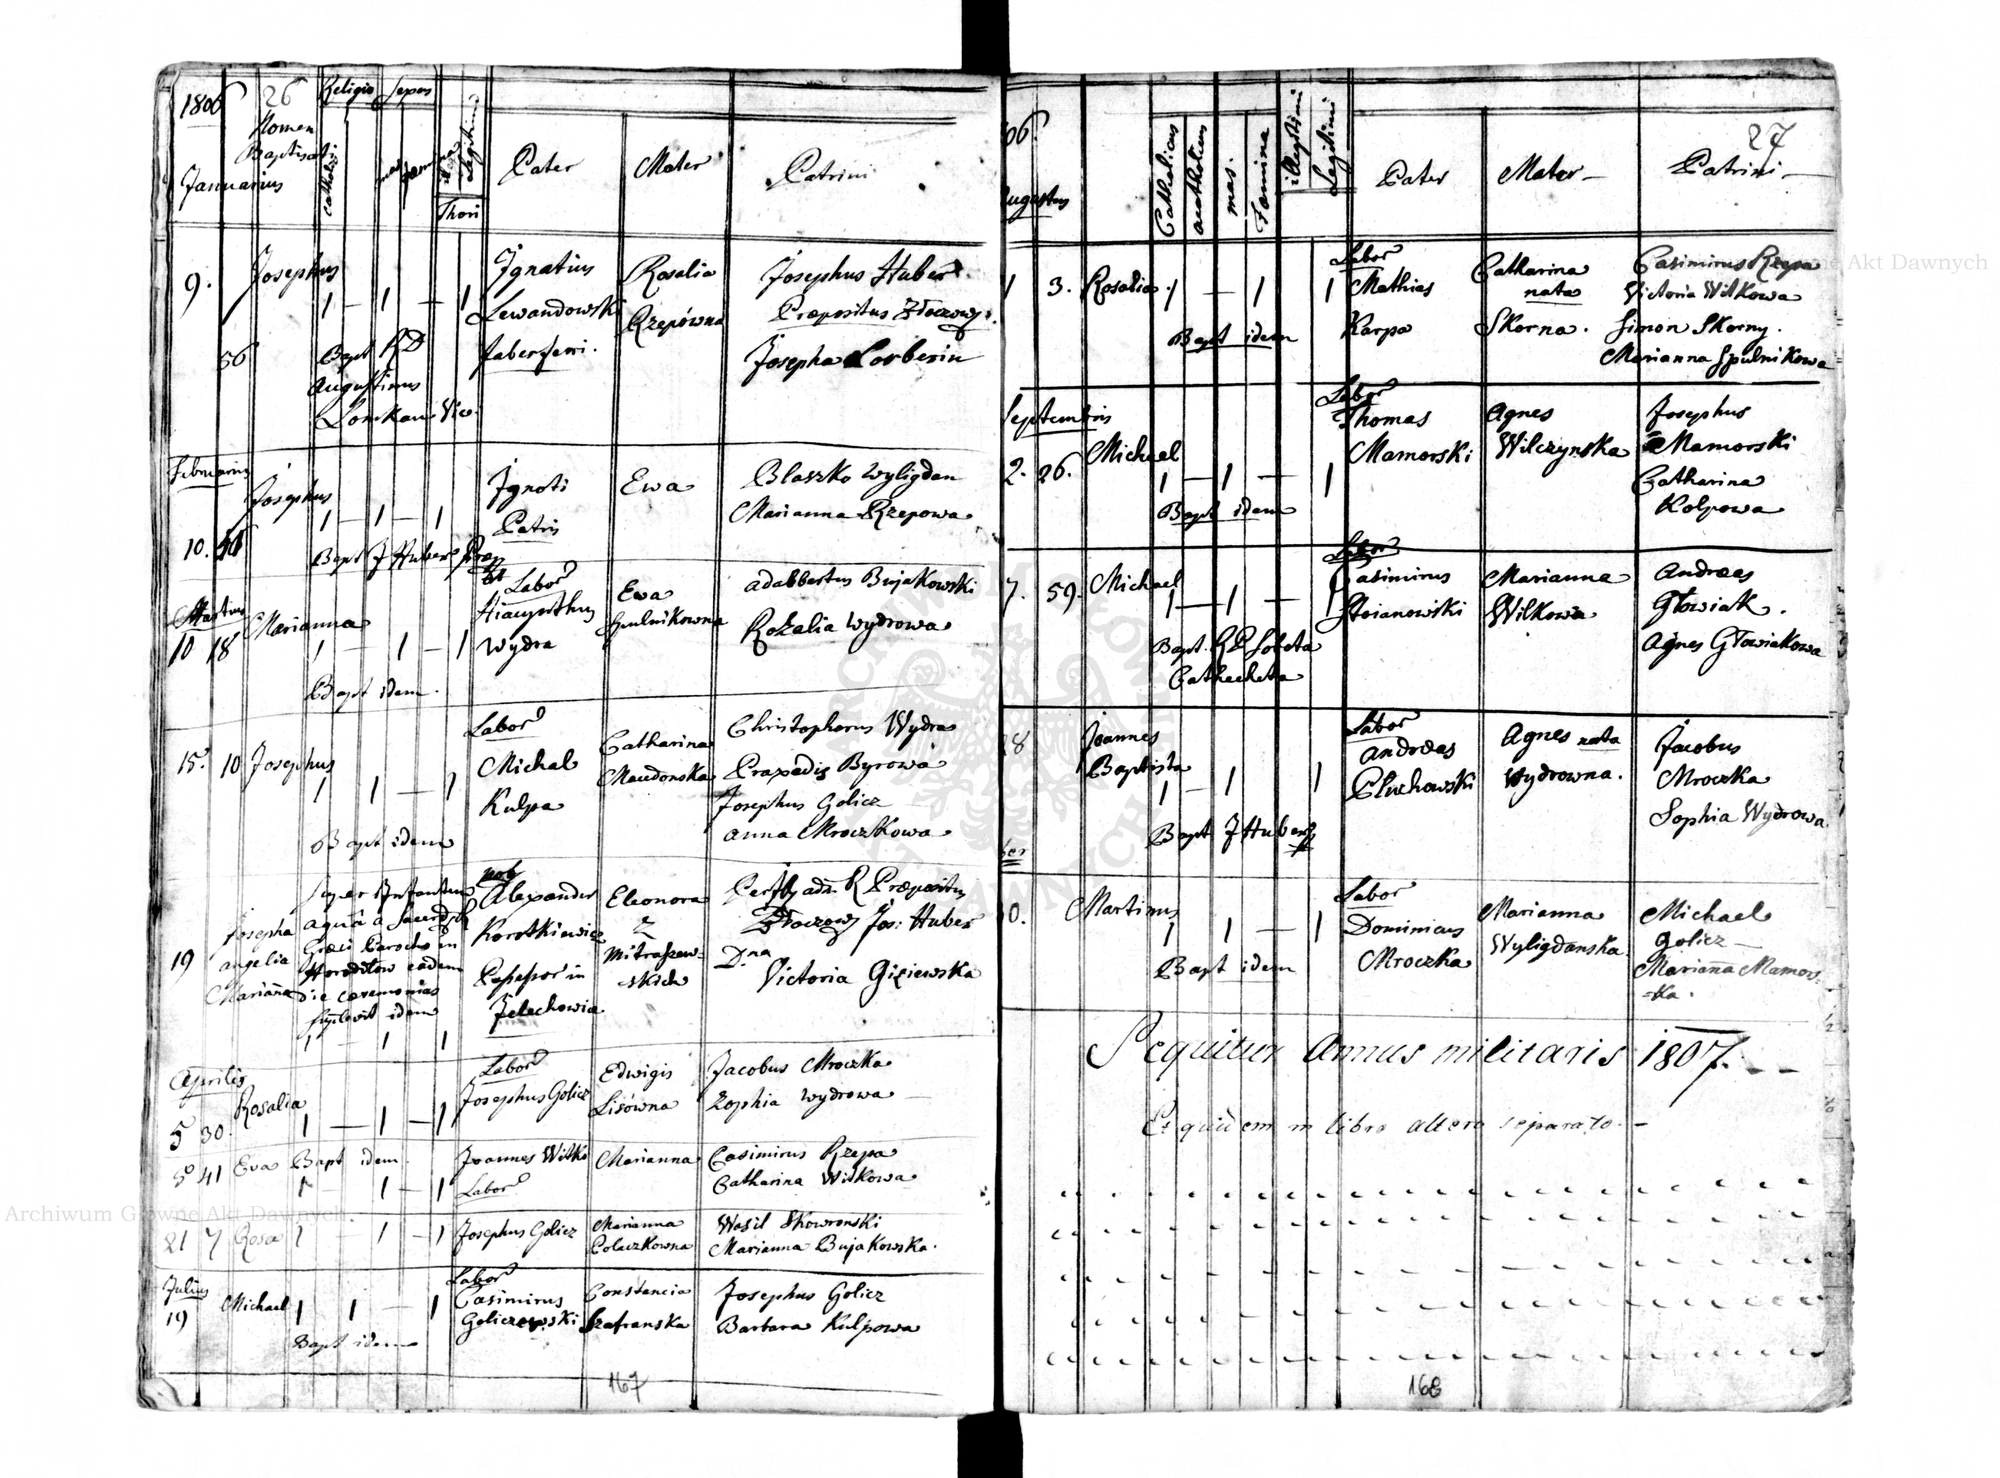 1806 26 Religio Sexus
Nomen
Baptisati
Januarius
Catholica
Thori
Pater Mater Patrini
9. Josephus Ignatius Rosalia Josephus Huber
1 — 1 — 1 Lewandowski Rzepówna Præpositus Złoczow:
56 Bapt RD faber ferri. Josepha Lorberin
Augustinus
Lomkau Vic.
Februarius
Josephus Ignoti Ewa Blaszko Wyligdan
1 — 1 — 1 Patris Marianna Rzepowa
10. Bapt J Huber Præp
Labor Ewa Adalbertus Bujakowski
Martius Marianna Hiacynthus
10 18 1 — 1 — 1 Wydra Rozalia Wydrowa
Bapt idem.
Labor Christophorus Wydra
15. 10 Josephus Michael Catharina Praxedis Byrowa
1 1 — 1 Kulpa Josephus Golicz
Bapt idem Anna Mroczkowa
nob
Josepha Alexander Eleonora
Angelia Korotkiewicz z
19 Marianna Possessor in
aqua a Sacerd
Græci Parocho in
eadem
die ceremonias
supplevit idem
Jos: Huber
Dna
Victoria Giziewska
1 — 1 1
Aprilis Labor Edwigis Jacobus Mroczka
Rosalia Josephus Golicz Lisówna Zophia Wydrowa
5 30. 1 — 1 — 1
5 41 Eva Bapt idem Joannes Witko Marianna Casimirus Rzepa
1 — 1 — 1 Labor Catharina Witkowa
21 7 Rosa 1 — 1 — 1 Josephus Golicz Marianna Wasil Skowronski
Polaczkowna Marianna Bujakowska.
Julius Labor
19 Michael 1 1 — 1 Casimirus Constancia Josephus Golicz
Goliczewski Szafranska Barbara Kulpowa
Bapt idem
167
06 27
Augustus
Catholicus
acatholicus
mas.
Fæmina
illegitimi
Legitimi
Pater Mater Patrini
Labor
1 3. Rosalia 1 — 1 1 Mathias Catharina Casimirus Rzepa
nata Victoria Witkowa
Bapt idem Karpa Skorna. Simon Skorny.
Marianna Spulnikowa
Septembris
Labor
2. 26. Michael Thomas Agnes Josephus
1 — 1 — 1 Mamorski Wilczynska Mamorski
Bapt idem Catharina
Kolpowa
Labor
7. 59. Michael Casimirus Marianna Andreas
1 — 1 — 1 Stoianowski Wilkowa Głowiak.
Bapt. R P Soleta Agnes Głowiakowa
Cathecheta
28 Joannes Labor Agnes nata Jacobus
Baptista Andreas Wydrowna. Mroczka
1 — 1 1 Pluchowski Sophia Wydrowa.
Bapt J Huber
ber
0. Martinus Labor Marianna Michael
1 1 — 1 Dominicus Wyligdanska Golicz —
Bapt idem Mroczka Marianna Mamors-
-ka.
Sequitur Annus militaris 1807. — —
Et quidem in libro altero separato. —
168
Archiwum Główne Akt Dawnych
Archiwum Główne Akt Dawnych
ARCHIWUM GŁÓWNE AKT DAWNYCH